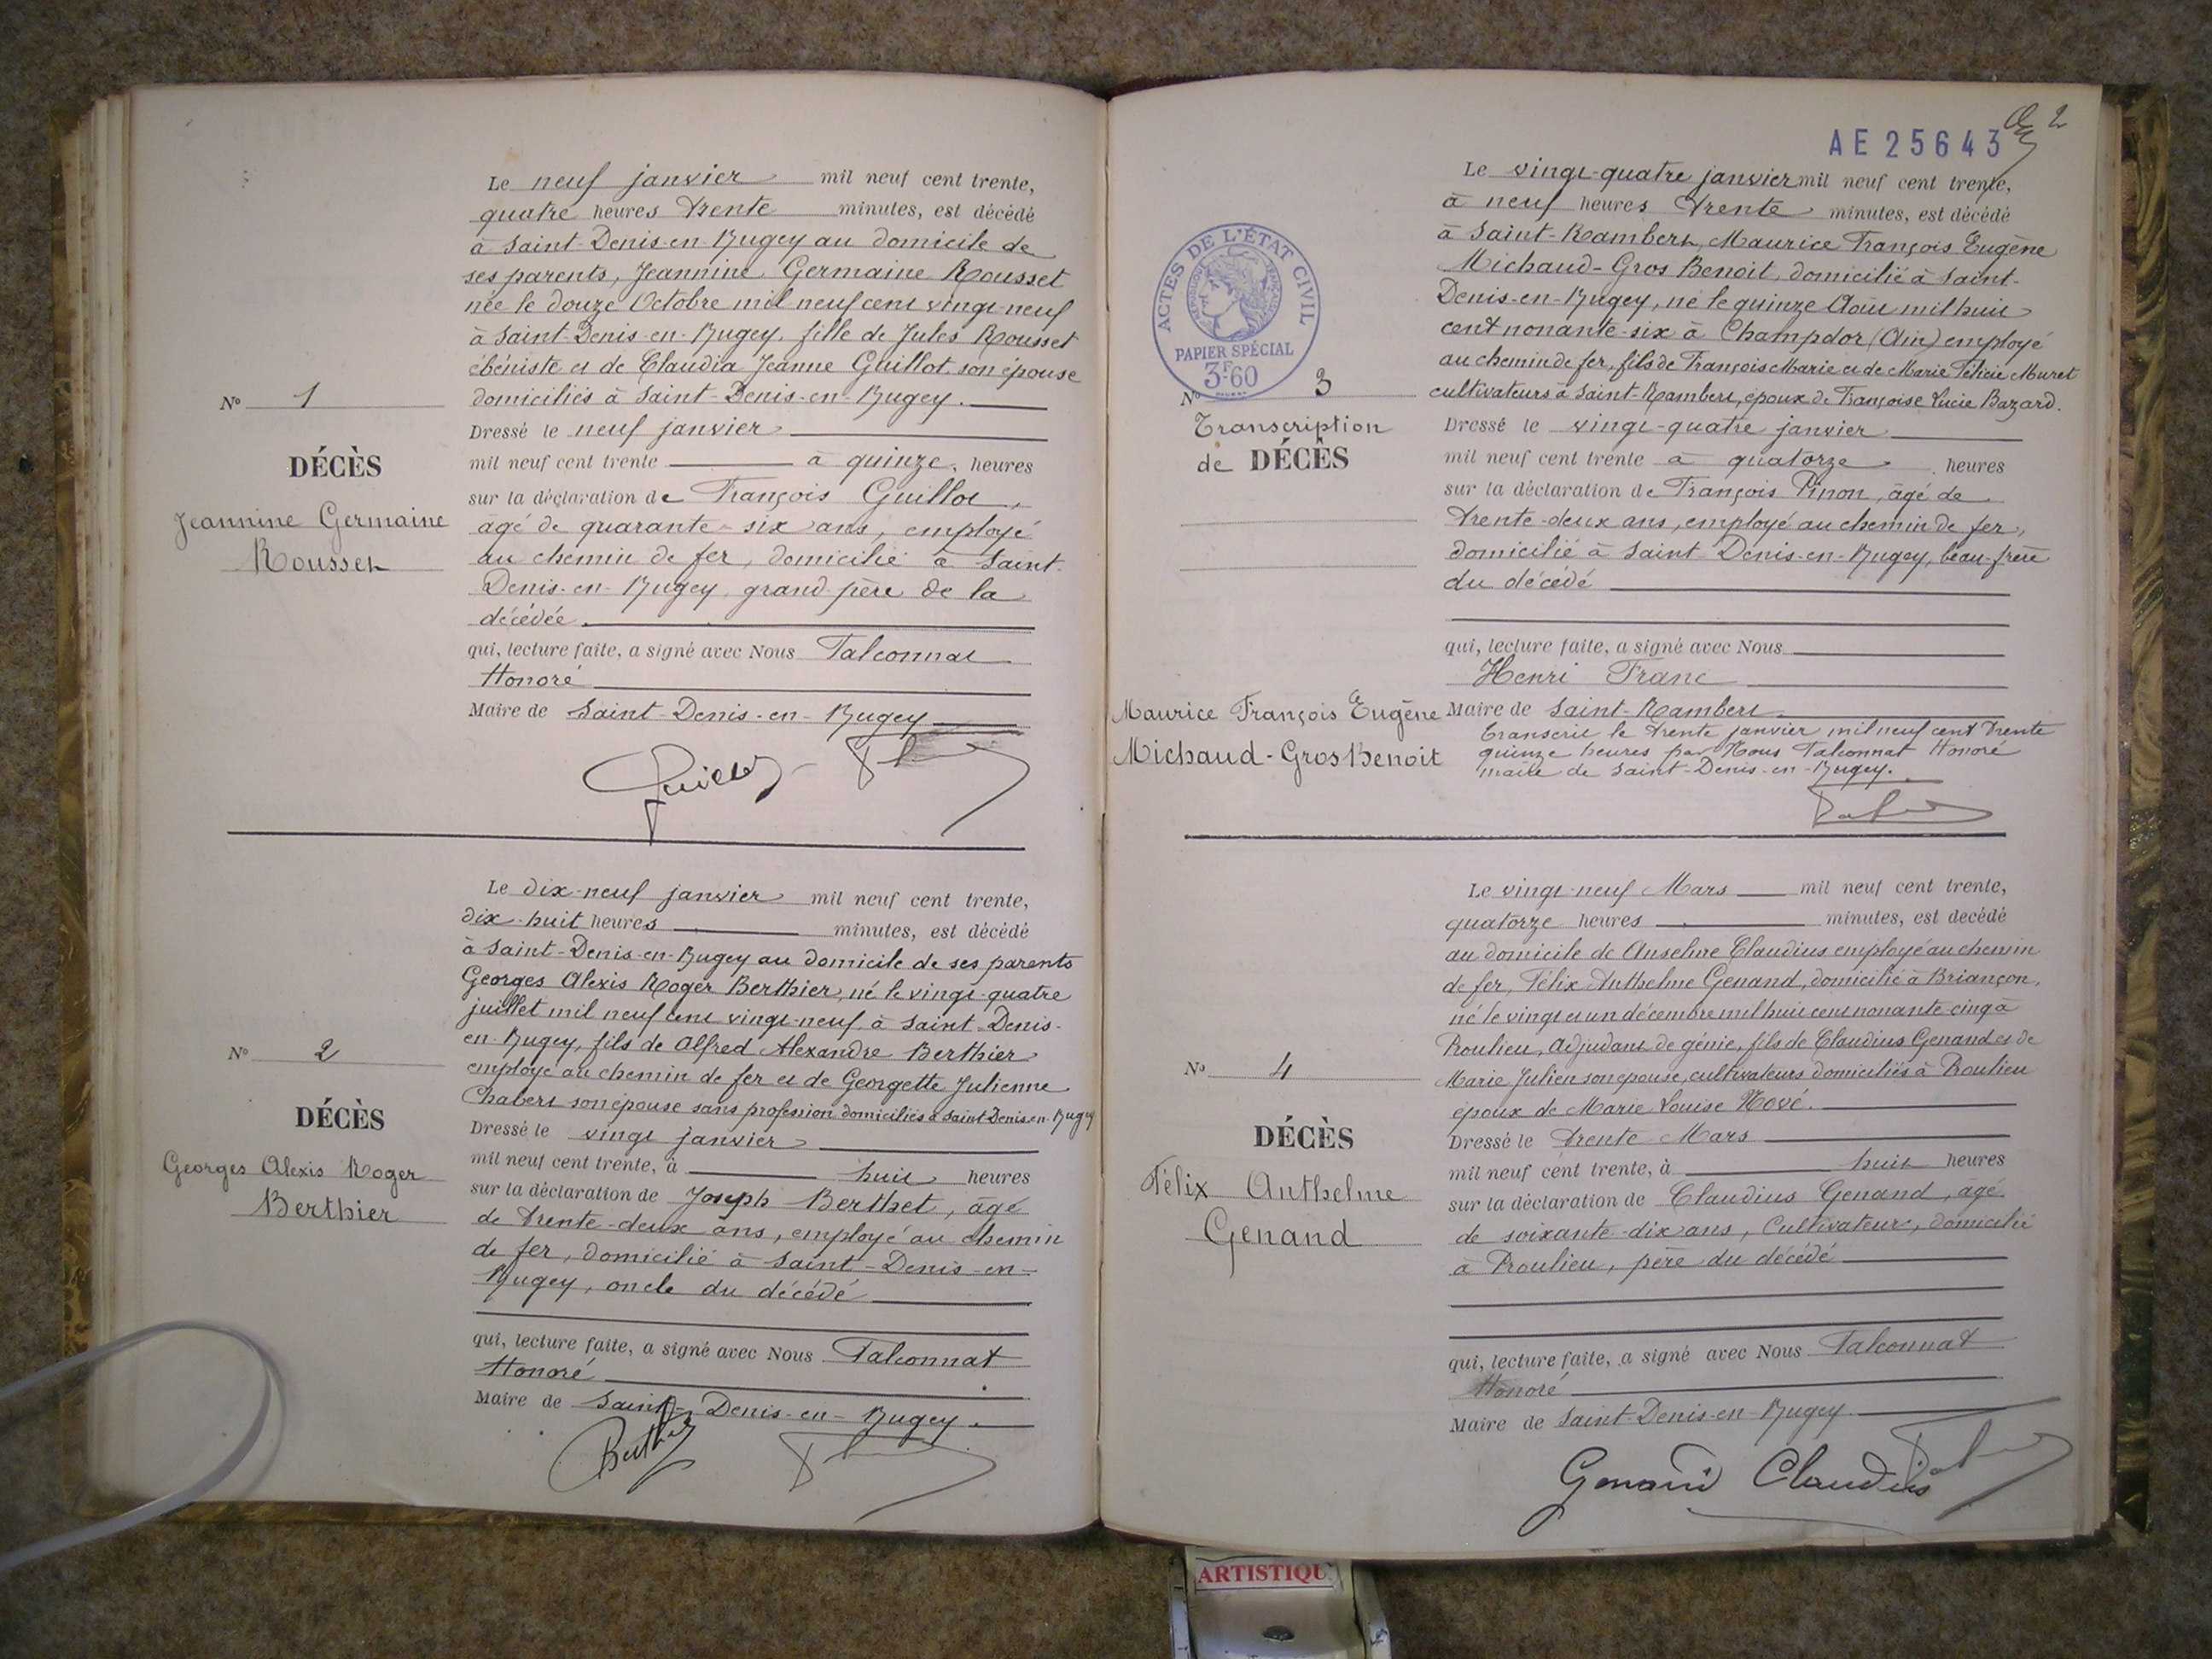 Le neuf janvier mil neuf cent trente,
quatre heures trente minutes, est décédé
à Saint-Denis-en-Bugey au domicile de
ses parents, Jeannine Germaine Rousset
née le douze Octobre mil neuf cent vingt-neuf
à Saint-Denis-en-Bugey, fille de Jules Rousset
ébéniste et de Claudia Jeanne Guillot son épouse
domiciliés à Saint-Denis-en-Bugey.
Dressé le neuf janvier
mil neuf cent trente à quinze heures
sur la déclaration de François Guillot,
âgé de quarante-six ans, employé
au chemin de fer, domicilié à Saint-
Denis-en-Bugey, grand-père de la
décédée.
qui, lecture faite, a signé avec Nous Falconnat
Honoré
Maire de Saint-Denis-en-Bugey
N° 1
DÉCÈS
Jeannine Germaine
Rousset
Le dix-neuf janvier mil neuf cent trente,
dix-huit heures minutes, est décédé
à Saint-Denis-en-Bugey au domicile de ses parents
Georges Alexis Roger Berthier, né le vingt-quatre
juillet mil neuf cent vingt-neuf à Saint-Denis-
en-Bugey, fils de Alfred Alexandre Berthier
employé au chemin de fer et de Georgette Julienne
Chabert son épouse sans profession domiciliés à Saint-Denis-en-Bugey
Dressé le vingt janvier
mil neuf cent trente, à huit heures
sur la déclaration de Joseph Berthet, âgé
de trente-deux ans, employé au chemin
de fer, domicilié à Saint-Denis-en-
Bugey, oncle du décédé
qui, lecture faite, a signé avec Nous Falconnat
Honoré
Maire de Saint-Denis-en-Bugey.
N° 2
DÉCÈS
Georges Alexis Roger
Berthier
AE 25643
2
Le vingt-quatre janvier mil neuf cent trente,
à neuf heures trente minutes, est décédé
à Saint-Rambert, Maurice François Eugène
Michaud-Gros Benoit, domicilié à Saint-
Denis-en-Bugey, né le quinze Août mil huit
cent nonante-six à Champdor (Ain) employé
au chemin de fer, fils de François Marie et de Marie Félicie Muret
cultivateurs à Saint-Rambert, époux de Françoise Lucie Bazard.
Dressé le vingt-quatre janvier
mil neuf cent trente à quatorze heures
sur la déclaration de François Pinon, âgé de
trente-deux ans, employé au chemin de fer,
domicilié à Saint-Denis-en-Bugey, beau-frère
du décédé
qui, lecture faite, a signé avec Nous
Henri Franc
Maire de Saint-Rambert
Transcrit le trente janvier mil neuf cent trente
quinze heures par Nous Falconnat Honoré
maire de Saint-Denis-en-Bugey.
ACTES DE L'ÉTAT CIVIL
PAPIER SPÉCIAL
3F60
N° 3
Transcription
de DÉCÈS
Maurice François Eugène
Michaud-Gros Benoit
Le vingt-neuf Mars mil neuf cent trente,
quatorze heures minutes, est décédé
au domicile de Anselme Claudius employé au chemin
de fer, Félix Anthelme Genand, domicilié à Briançon,
né le vingt et un décembre mil huit cent nonante-cinq à
Proulieu, adjudant de génie, fils de Claudius Genand et de
Marie Julien son épouse, cultivateurs domiciliés à Proulieu
époux de Marie Louise Nové.
Dressé le trente Mars
mil neuf cent trente, à huit heures
sur la déclaration de Claudius Genand, âgé
de soixante-dix ans, Cultivateur, domicilié
à Proulieu, père du décédé
qui, lecture faite, a signé avec Nous Falconnat
Honoré
Maire de Saint-Denis-en-Bugey
Genand Claudius
N° 4
DÉCÈS
Félix Anthelme
Genand
ARTISTIQU